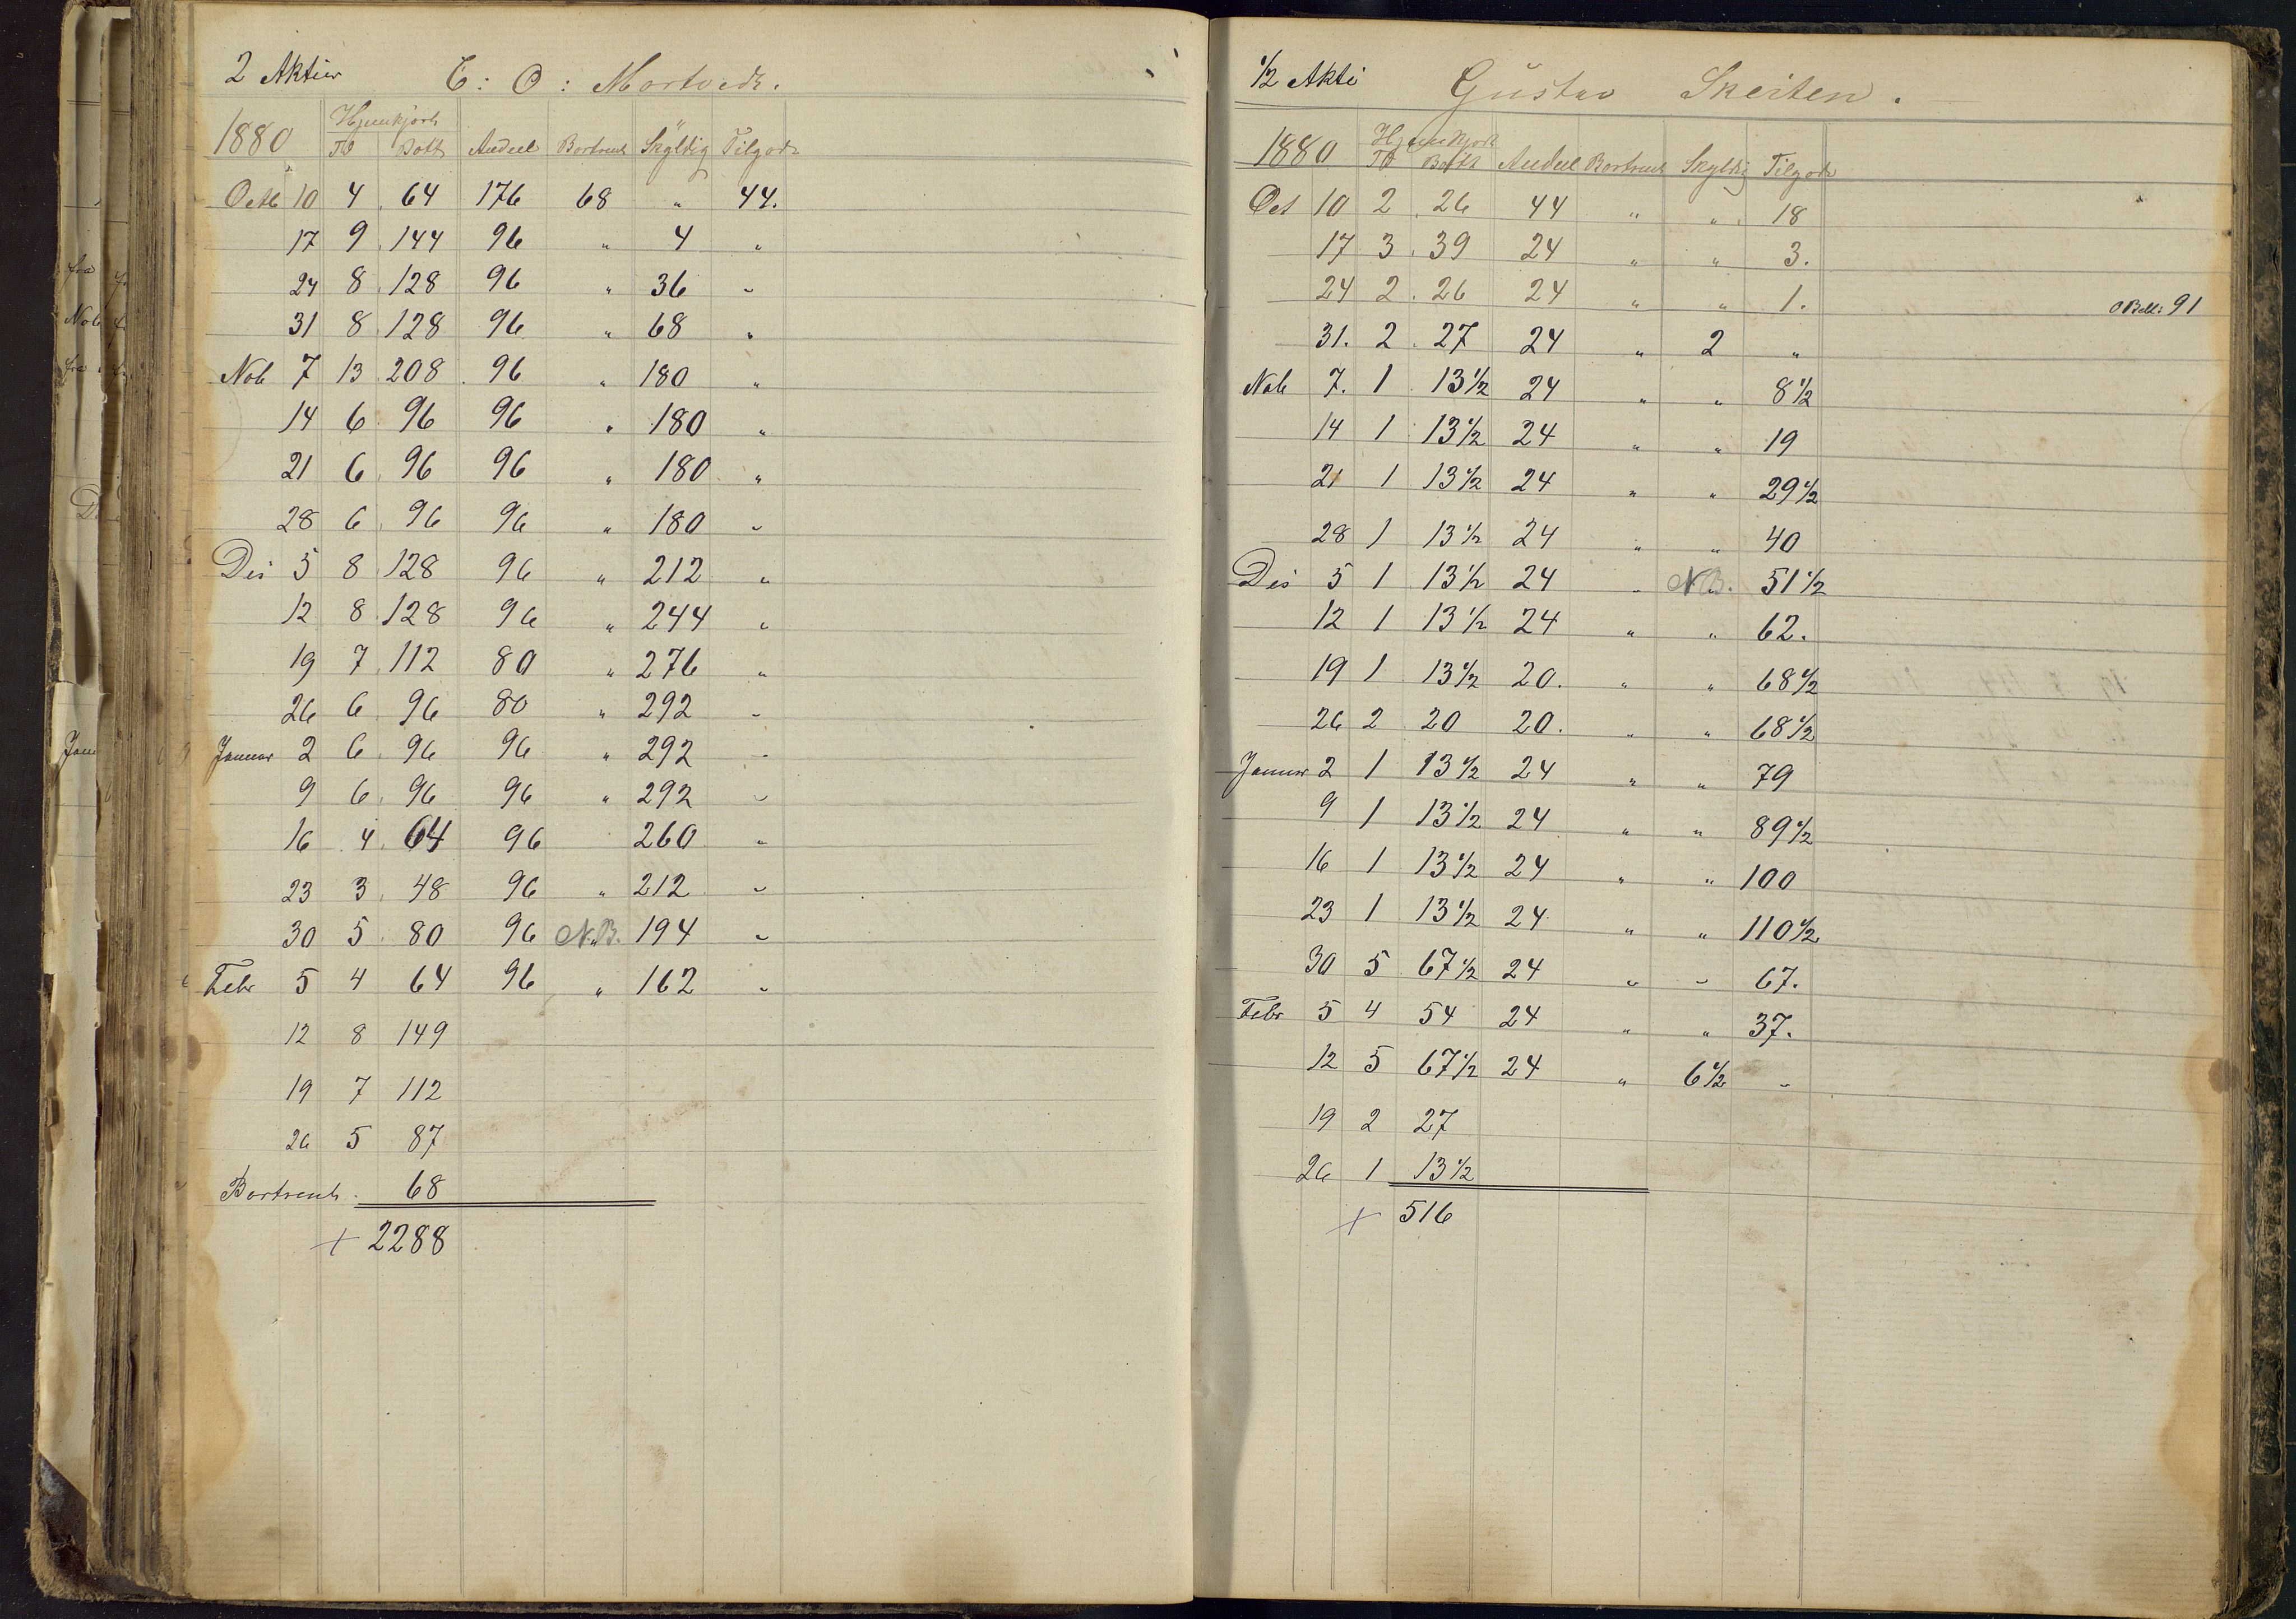 2 Aktier T: O: Mortvedt.
1880 Hjemkjørt
Td Pott Andeel Bortrent Skyldig Tilgode
Octb 10 4 64 176 68 " 44.
17 9 144 96 " 4 "
24 8 128 96 " 36 "
31 8 128 96 " 68 "
Nob 7 13 208 96 " 180 "
14 6 96 96 " 180 "
21 6 96 96 " 180 "
28 6 96 96 " 180 "
Des 5 8 128 96 " 212 "
12 8 128 96 " 244 "
19 7 112 80 " 276 "
26 6 96 80 " 292 "
Januar 2 6 96 96 " 292 "
9 6 96 96 " 292 "
16 4 64 96 260 "
23 3 48 96 " 212 "
30 5 80 96 N.B. 194 "
Febr 5 4 64 96 " 162 "
12 8 149
19 7 112
26 5 87
Bortrent 68
+ 2288
1/2 Akti Gustav Skeiten.
1880 Hjemkjørt
Td Pott Andeel Bortrent Skyldig Tilgode
Oct 10 2 26 44 " " 18
17 3 39 24 " " 3.
24 2 26 24 " " 1.
91
31. 2 27 24 " 2 "
Nob 7. 1 13 1/2 24 " " 8 1/2
14 1 13 1/2 24 " " 19
21 1 13 1/2 24 " " 29 1/2
28 1 13 1/2 24 " " 40
Des 5 1 13 1/2 24 " N.B. 51 1/2
12 1 13 1/2 24 " " 62.
19 1 13 1/2 20. " " 68 1/2
26 2 20 20. " " 68 1/2
Januar 2 1 13 1/2 24 " " 79
9 1 13 1/2 24 " " 89 1/2
16 1 13 1/2 24 " " 100
23 1 13 1/2 24 " " 110 1/2
30 5 67 1/2 24 " " 67.
Febr 5 4 54 24 " " 37.
12 5 67 1/2 24 " 6 1/2 "
19 2 27
26 1 13 1/2
+ 516